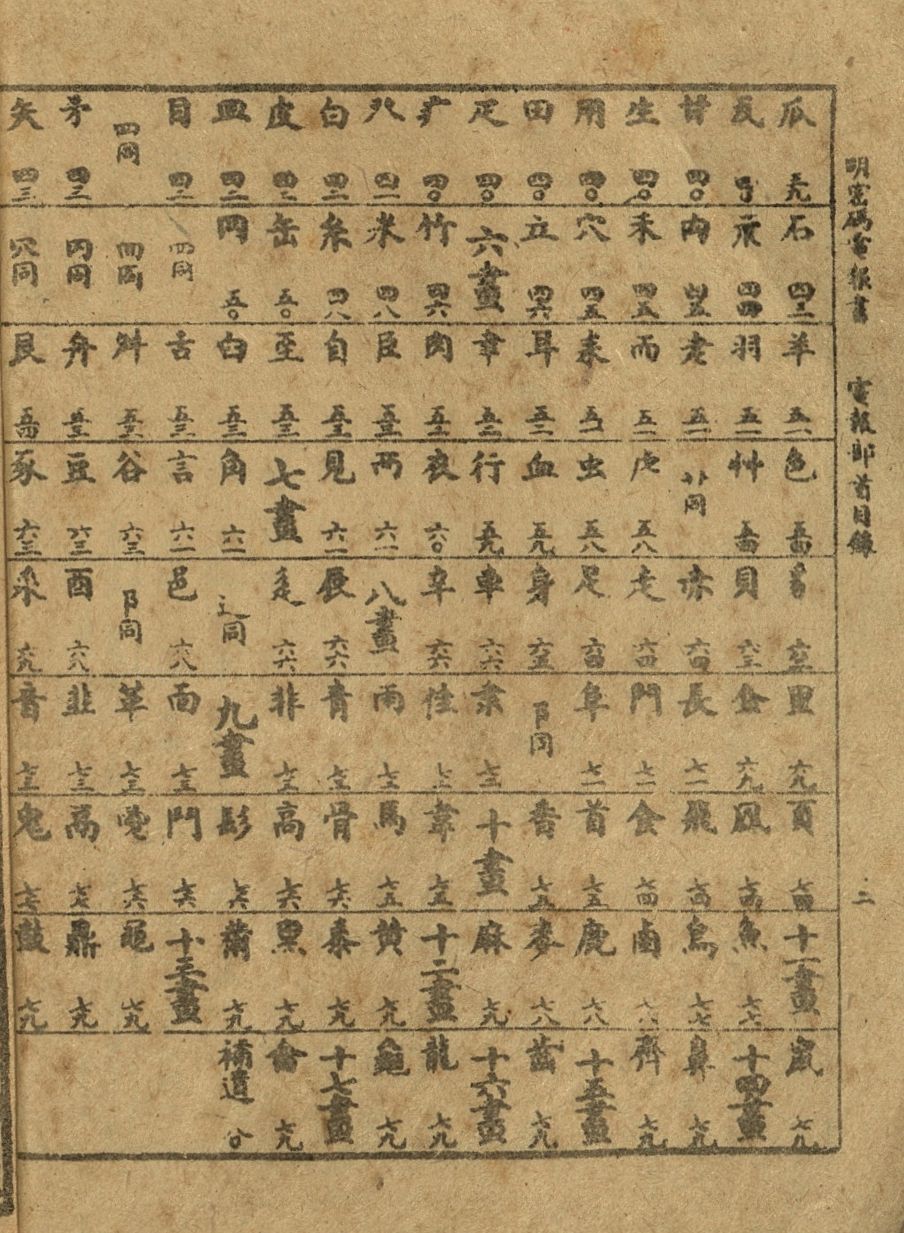 明密碼電報書 電報部首目錄 二
瓜 三九
瓦 四〇
甘 四〇
生 四〇
用 四〇
田 四〇
疋 四〇
疒 四〇
癶 四一
白 四二
皮 四二
皿 四二
目 四二
罒同
矛 四三
矢 四三
石 四三
示 四四
禸 四五
禾 四五
穴 四五
立 四六
六畫
竹 四六
米 四八
糸 四八
缶 五〇
网 五〇
罒同
穴同
羊 五一
羽 五一
老 五一
而 五一
耒 五一
耳 五二
聿 五二
肉 五二
臣 五三
自 五三
至 五三
臼 五三
舌 五三
舛 五三
舟 五三
艮 五四
色 五四
艸 五四
艹同
虍 五八
虫 五八
血 五九
行 五九
衣 六〇
襾 六一
見 六一
七畫
角 六一
言 六一
谷 六三
豆 六三
豕 六三
豸 六三
貝 六三
赤 六四
走 六四
足 六四
身 六五
車 六六
辛 六六
八畫
辰 六六
辵 六六
辶同
邑 六八
阝同
酉 六八
釆 六九
里 六九
金 六九
長 七一
門 七一
阜 七二
阝同
隶 七二
隹 七二
雨 七三
青 七三
非 七三
九畫
面 七三
革 七三
韭 七三
音 七三
頁 七四
風 七四
飛 七四
食 七四
首 七五
香 七五
十畫
韋 七五
馬 七五
骨 七六
高 七六
髟 七六
鬥 七六
鬯 七六
鬲 七七
鬼 七七
十一畫
魚 七七
鳥 七七
鹵 七八
鹿 七八
麥 七八
麻 七九
十二畫
黃 七九
黍 七九
黑 七九
黹 七九
十三畫
黽 七九
鼎 七九
鼓 七九
鼠 七九
十四畫
鼻 七九
齊 七九
十五畫
齒 七九
十六畫
龍 七九
龜 七九
十七畫
龠 七九
補遺 八〇